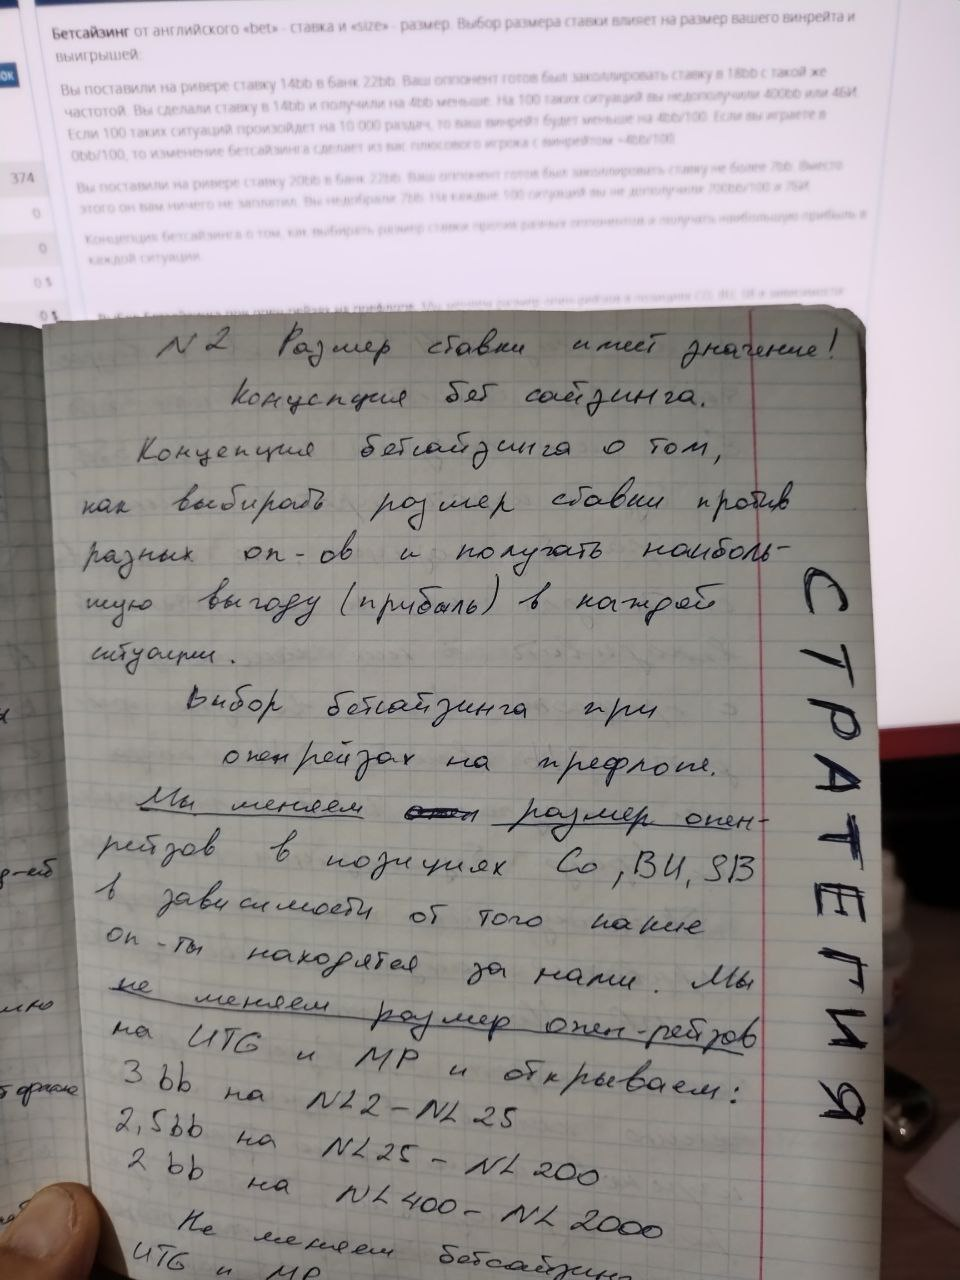 Бетсайзинг от английского «bet» - ставка и «size» - размер. Выбор размера ставки влияет на размер вашего винрейта и
выигрышей:
Вы поставили на ривере ставку 14bb в банк 22bb. Ваш оппонент готов был заколлировать ставку в 18bb с такой же
частотой. Вы сделали ставку в 14bb и получили на 4bb меньше. На 100 таких ситуаций вы недополучили 400bb или 4БИ.
Если 100 таких ситуаций произойдет на 10 000 раздач, то ваш винрейт будет меньше на 4bb/100. Если вы играете в
0bb/100, то изменение бетсайзинга сделает из вас плюсового игрока с винрейтом +4bb/100.
Вы поставили на ривере ставку 20bb в банк 22bb. Ваш оппонент готов был заколлировать ставку не более 7bb. Вместо
этого он вам ничего не заплатил. Вы недобрали 7bb. На каждые 100 ситуаций вы не дополучили 700bb/100 и 7БИ.
Концепция бетсайзинга о том, как выбирать размер ставки против разных оппонентов и получать наибольшую прибыль в
каждой ситуации.
ок
374
0
0
0 $
0 $
N2 Размер ставки имеет значение!
Концепция бет сайзинга.
Концепция бетсайзинга о том,
как выбирать размер ставки против
разных оп-ов и получать наиболь-
шую выгоду (прибыль) в каждой
ситуации.
Выбор бетсайзинга при
опенрейзах на префлопе.
Мы меняем размер опен-
рейзов в позициях Co, BU, SB
в зависимости от того какие
оп-ты находятся за нами. Мы
не меняем размер опен-рейзов
на UTG и MP и открываем:
3 bb на NL2-NL25
2,5bb на NL25 - NL200
2 bb на NL400- NL2000
Не меняем бетсайзинг
UTG и MP
СТРАТЕГИЯ